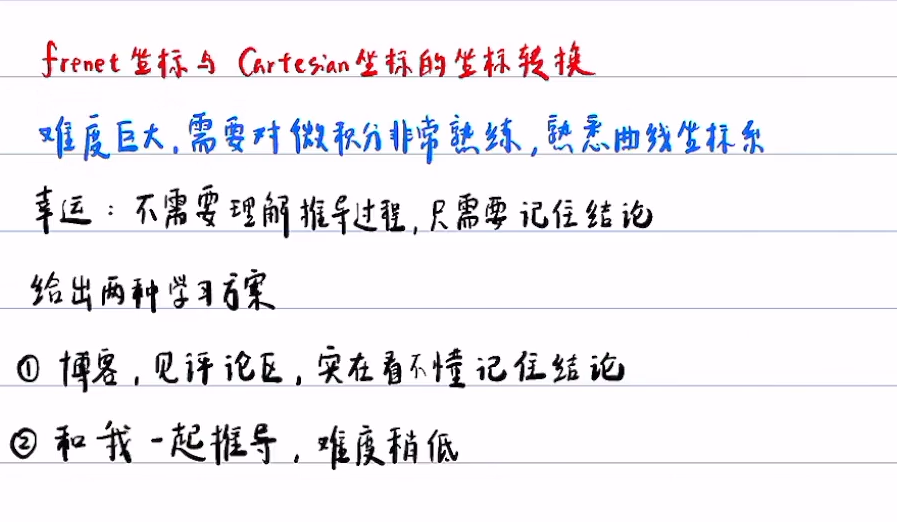 frenet坐标与 Cartesian坐标的坐标转换
难度巨大,需要对微积分非常熟练,熟悉曲线坐标系
幸运:不需要理解推导过程,只需要记住结论
给出两种学习方案
① 博客,见评论区,实在看不懂记住结论
② 和我一起推导,难度稍低